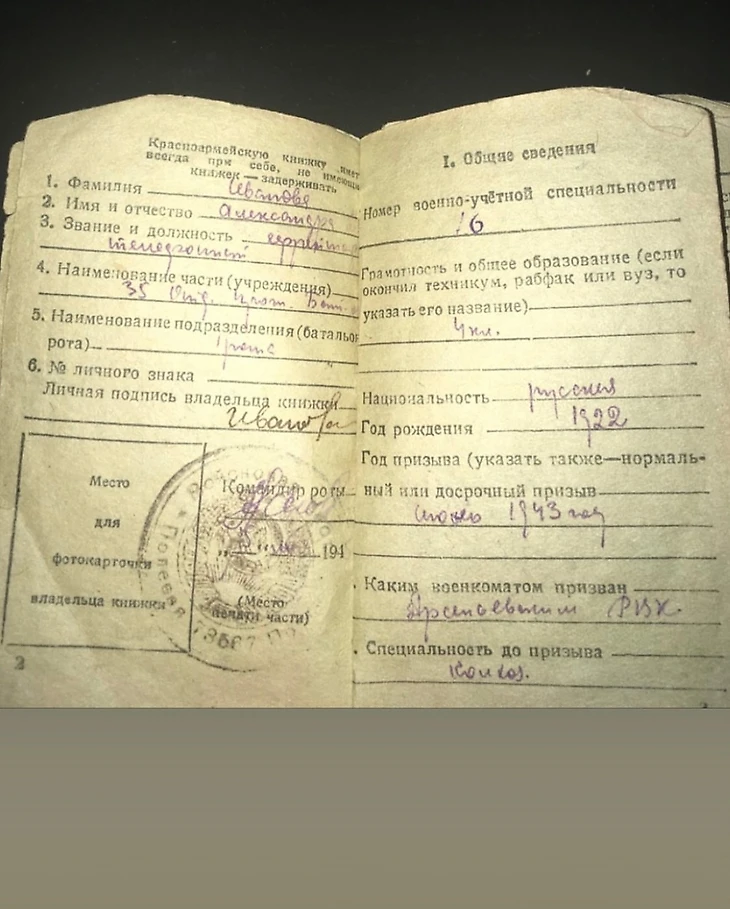 Красноармейскую книжку иметь
всегда при себе, не имеющих
книжек — задерживать
1. Фамилия Иванова
2. Имя и отчество Александра
3. Звание и должность ефрейтор
4. Наименование части (учреждения)
35 Отд.
5. Наименование подразделения (батальон
рота)
6. № личного знака
Личная подпись владельца книжки
Иванова
Место
для
фотокарточки
владельца книжки
Командир роты
194
(Место
печати части)
Полевая
2
I. Общие сведения
Номер военно-учётной специальности
16
Грамотность и общее образование (если
окончил техникум, рабфак или вуз, то
указать его название)
4 кл.
Национальность русская
Год рождения 1922
Год призыва (указать также—нормаль-
ный или досрочный призыв
1943 год
Каким военкоматом призван
Арсеньевским РВК.
Специальность до призыва
Колхоз.